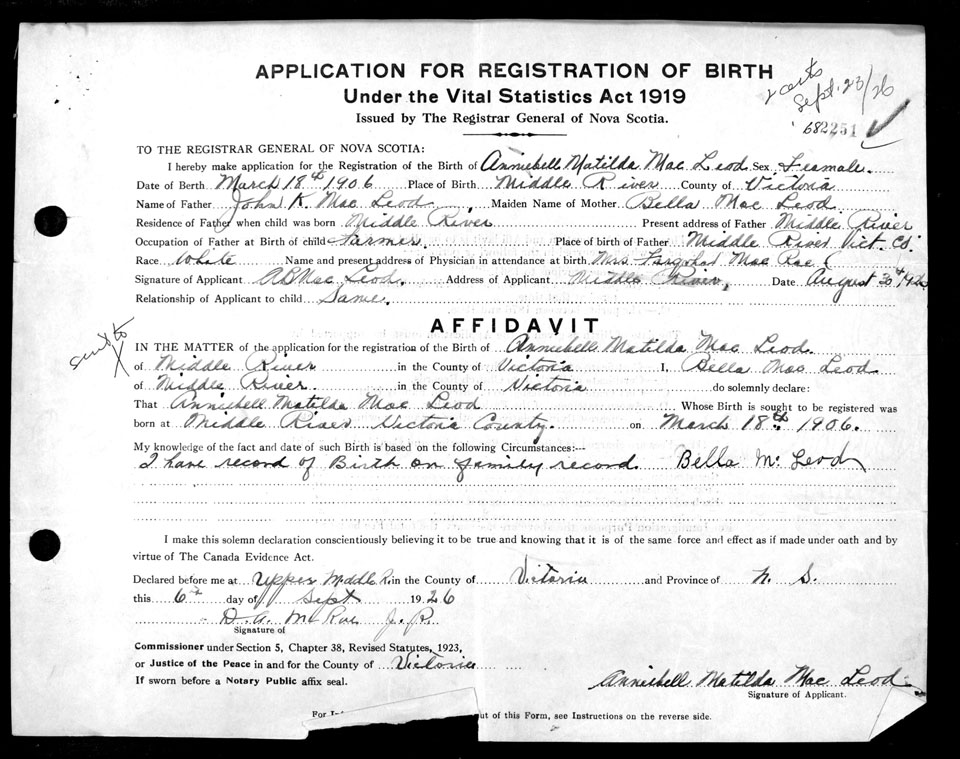 APPLICATION FOR REGISTRATION OF BIRTH
Under the Vital Statistics Act 1919
Issued by The Registrar General of Nova Scotia.
2 certs
Sept. 23/26
682251
TO THE REGISTRAR GENERAL OF NOVA SCOTIA:
I hereby make application for the Registration of the Birth of Anniebell Matilda Mac Leod Sex Feamale.
Date of Birth March 18th 1906 Place of Birth Middle River County of Victoria
Name of Father John K. Mac Leod Maiden Name of Mother Bella Mac Leod
Residence of Father when child was born Middle River Present address of Father Middle River
Occupation of Father at Birth of child Farmer. Place of birth of Father Middle River Vict. Co.
Race White Name and present address of Physician in attendance at birth Mrs. Farquhar Mac Rae
Signature of Applicant AB Mac Leod. Address of Applicant Middle River, Date August 30th
Relationship of Applicant to child Same.
AFFIDAVIT
IN THE MATTER of the application for the registration of the Birth of Anniebell Matilda Mac Leod.
of Middle River in the County of Victoria I, Bella Mac Leod
of Middle River. in the County of Victoria do solemnly declare:
That Anniebell Matilda Mac Leod Whose Birth is sought to be registered was
born at Middle River Victoria County. on March 18th 1906.
My knowledge of the fact and date of such Birth is based on the following Circumstances:—
I have record of Birth on family record. Bella Mc Leod
I make this solemn declaration conscientiously believing it to be true and knowing that it is of the same force and effect as if made under oath and by
virtue of The Canada Evidence Act.
Declared before me at Upper Middle R. in the County of Victoria and Province of N. S.
this 6th day of Sept 1926
D. A. McRae J. P.
Signature of
Commissioner under Section 5, Chapter 38, Revised Statutes, 1923,
or Justice of the Peace in and for the County of Victoria
If sworn before a Notary Public affix seal.
Anniebell Matilda Mac Leod
Signature of Applicant.
For out of this Form, see Instructions on the reverse side.